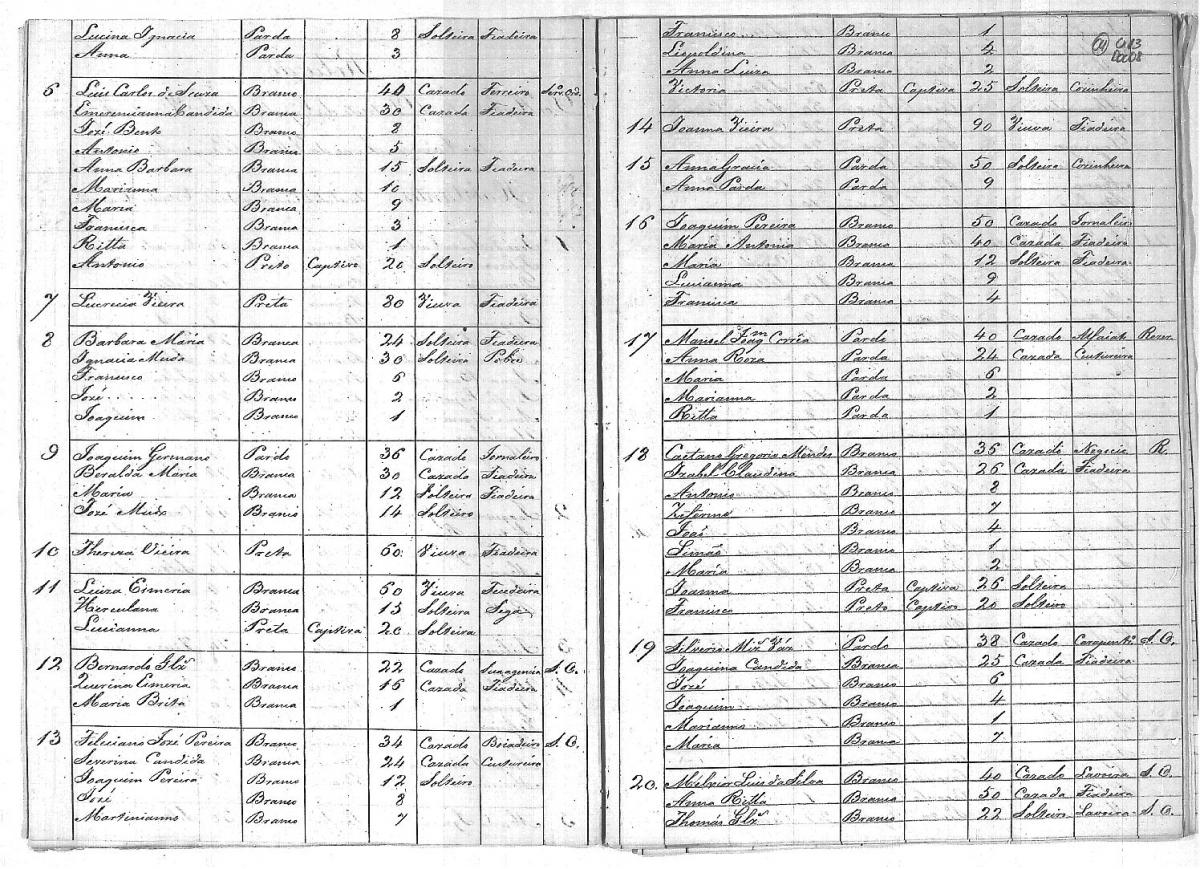 Lucina Ignacia Parda 8 Solteira Fiadeira
Anna Parda 3
6 Luis Carlos de Souza Branco 40 Cazado Ferreiro
Emerenciana Candida Branca 30 Cazada Fiadeira
José Bento Branco 8
Antonio Branco 5
Anna Barbara Branca 15 Solteira Fiadeira
Marianna Branca 10
Maria Branca 9
Francisca Branca 3
Ritta Branca 1
Antonio Preto Captivo 20 Solteiro
7 Lucrecia Vieira Preta 80 Viuva Fiadeira
8 Barbara Maria Branca 24 Solteira Fiadeira
Ignacia Branca 30 Solteira Pobre
Francisco Branco 6
José Branco 2
Joaquim Branco 1
9 Joaquim Germano Pardo 36 Cazado Jornaleiro
Beralda Maria Branca 30 Cazada Fiadeira
Maria Branca 12 Solteira Fiadeira
José Branco 14 Solteiro
10 Thereza Vieira Preta 60 Viuva Fiadeira
11 Luiza Esmeria Branca 60 Viuva Fiadeira
Herculana Branca 13 Solteira Sega
Lucianna Preta Captiva 20 Solteira
12 Bernardo Glz Branco 22 Cazado S. O.
Esmeria Branca 16 Cazada Fiadeira
Maria Brita Branca 1
13 Feliciano José Pereira Branco 34 Cazado Boiadeiro S. O.
Severina Candida Branca 24 Cazada Custureira
Joaquim Pereira Branco 12 Solteiro
José Branco 8
Martinianno Branco 7
Francisco Branco 1
Leopoldina Branca 4
Anna Luiza Branca 2
Victoria Preta Captiva 25 Solteira Cozinheira
14 Joanna Vieira Preta 90 Viuva Fiadeira
15 Anna Gracia Parda 50 Solteira Cozinheira
Anna Parda Parda 9
16 Joaquim Pereira Branco 50 Cazado Jornaleiro
Maria Antonia Branca 40 Cazada Fiadeira
Maria Branca 12 Solteira Fiadeira
Lucianna Branca 9
Francisca Branca 4
17 Manoel Joaqm Corrêa Pardo 40 Cazado Alfaiate Rezer.
Anna Roza Parda 24 Cazada Custureira
Maria Parda 6
Marianna Parda 2
Ritta Parda 1
18 Caetano Gregorio Mendes Branco 35 Cazado Negocio R.
Izabel Claudina Branca 26 Cazada Fiadeira
Antonio Branco 8
Zeferino Branco 7
José Branco 4
Simão Branco 1
Maria Branca 2
Joanna Preta Captiva 26 Solteira
Francisco Preto Captivo 20 Solteiro
19 Silverio Miz Váz Pardo 38 Cazado S. O.
Joaquina Candida Branca 25 Cazada Fiadeira
José Branco 6
Joaquim Branco 4
Marianno Branco 1
Maria Branca 7
20. Luis da Silva Branco 40 Cazado Lavoira S. O.
Anna Ritta Branca 50 Cazada Fiadeira
Thomás Glz Branco 22 Solteiro Lavoira S. O.